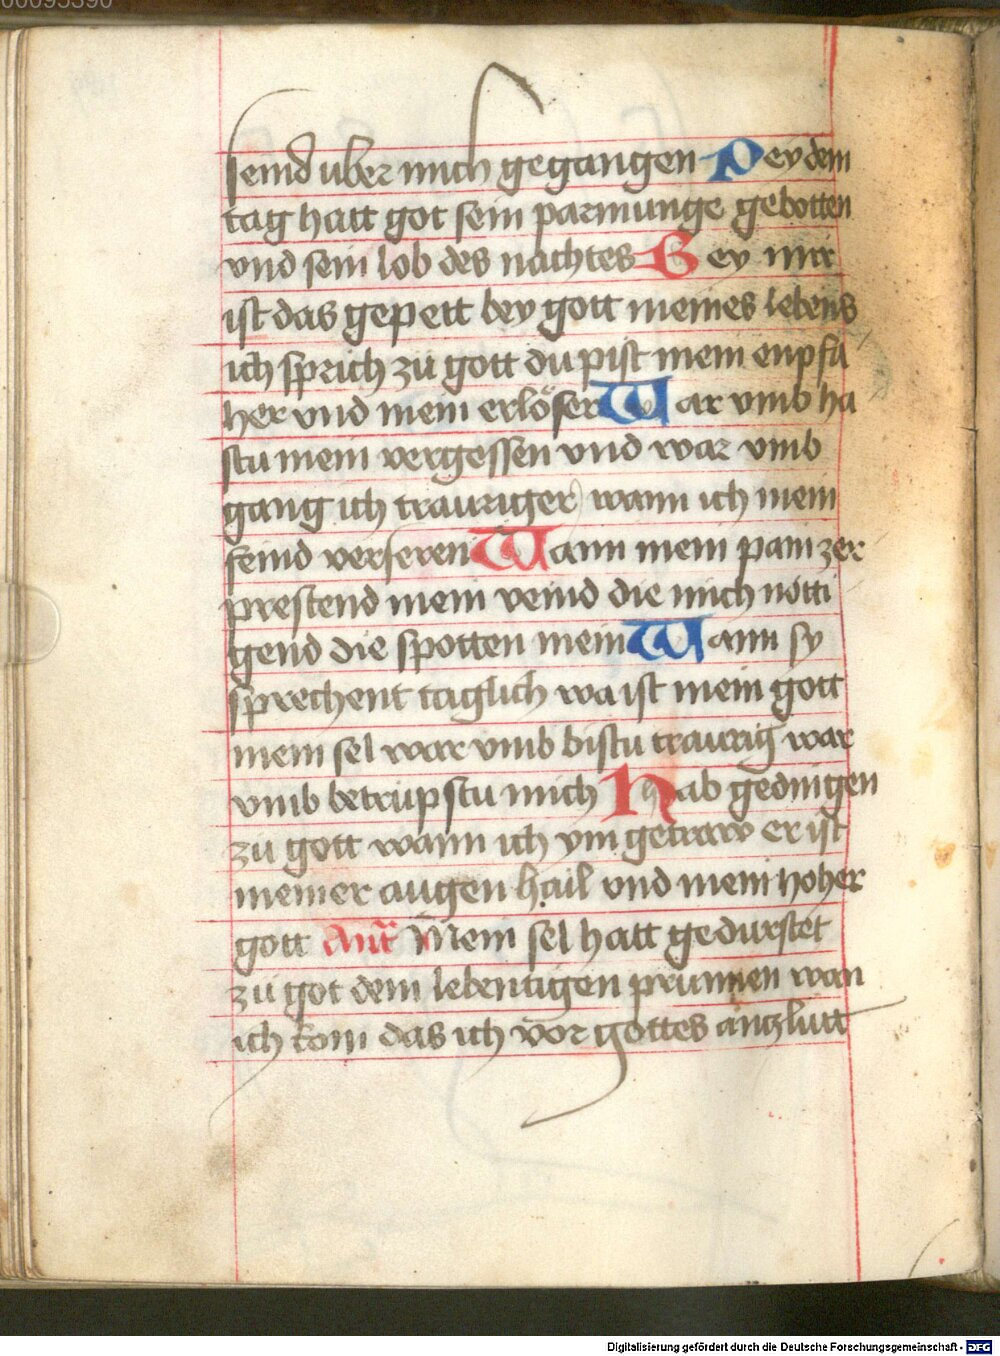 00095390
seind uber mich gegangen Pey dem
tag hatt got sein parmunge gebotten
vnd sein lob des nachtes Bey mir
ist das gepett bey gott meines lebens
ich sprich zu gott du pist mein enpfa
her vnd mein erlöser War vmb ha
stu mein vergessen vnd war vmb
gang ich trauriger wann ich mein
feind verseren Wann mein pain zer
prestend mein veind die mich nötti
gend die spotten mein Wann sy
sprechent taglich wa ist mein gott
mein sel war vmb bistu traurig war
vmb betrüpstu mich Hab gedingen
zu gott wann ich ym getraw er ist
meiner augen hail vnd mein hoher
gott Ant Mein sel hatt gedurstet
zu got dem lebentigen prunnen wan
ich kom das ich vor gottes antzlutt
Digitalisierung gefördert durch die Deutsche Forschungsgemeinschaft - DFG